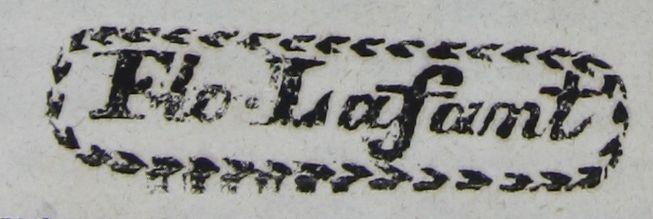 Flo·Lafant